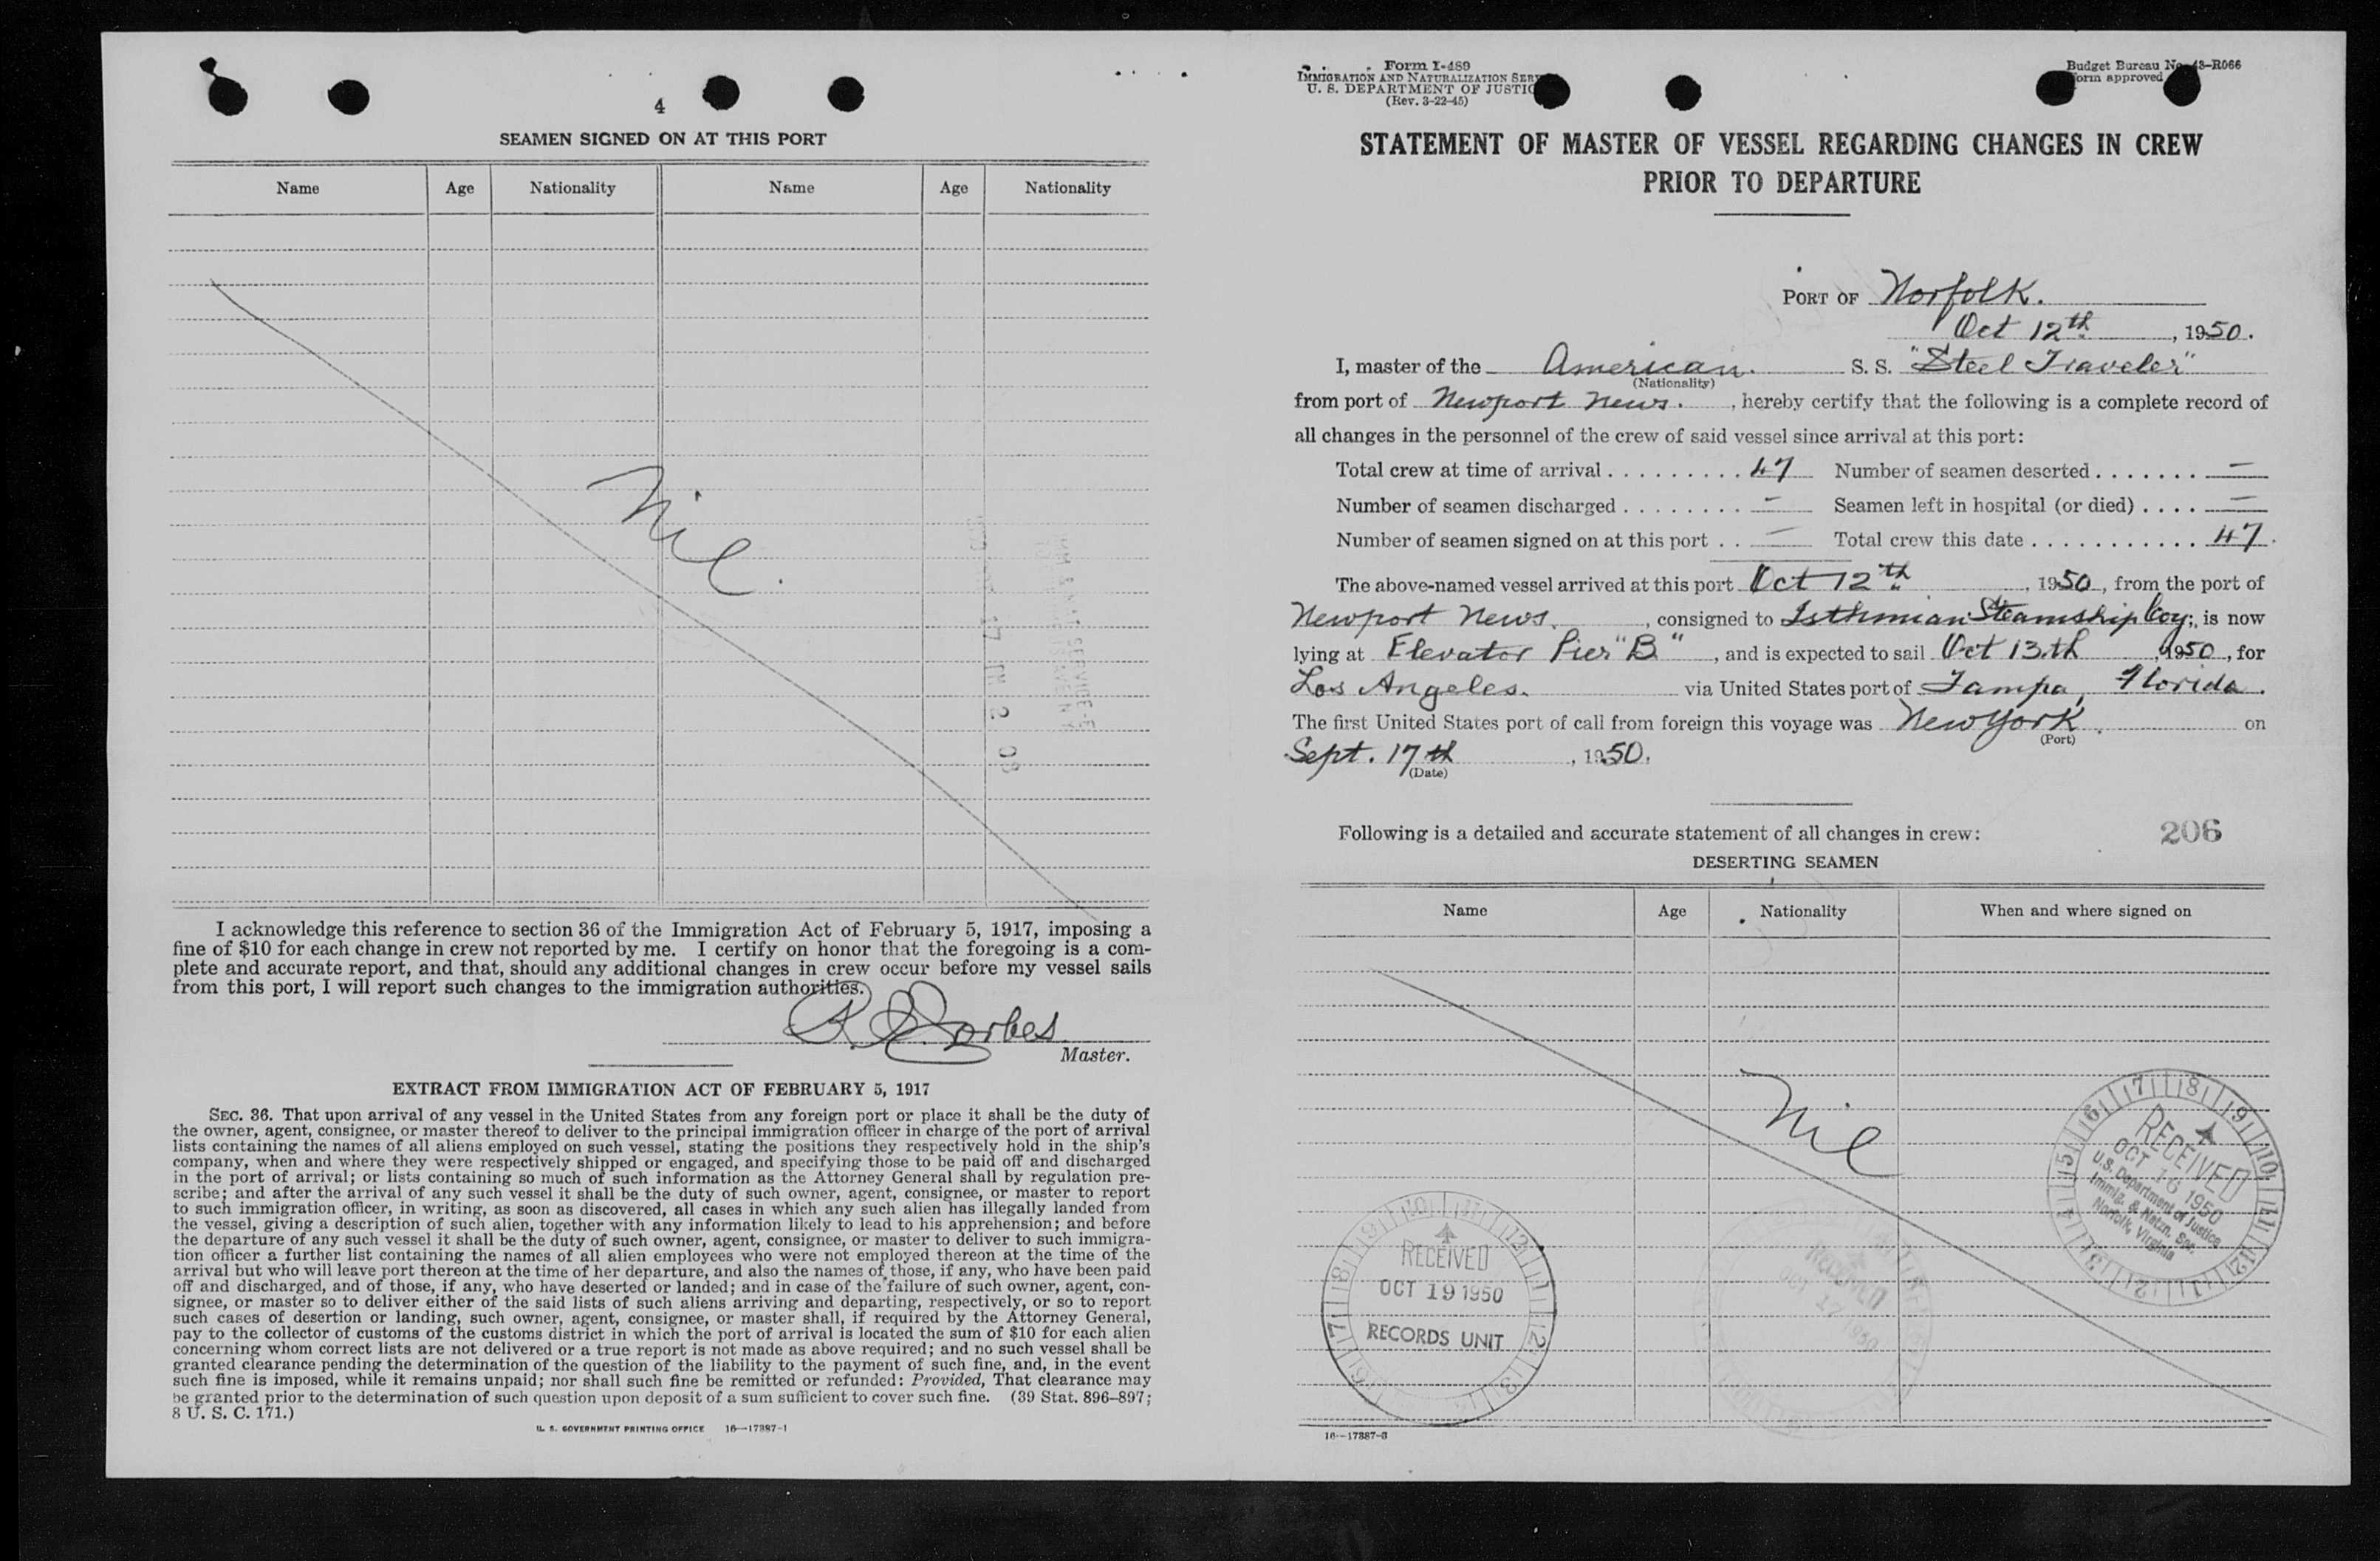 4
SEAMEN SIGNED ON AT THIS PORT
Name Age Nationality Name Age Nationality
Nil.
I acknowledge this reference to section 36 of the Immigration Act of February 5, 1917, imposing a
fine of $10 for each change in crew not reported by me. I certify on honor that the foregoing is a com-
plete and accurate report, and that, should any additional changes in crew occur before my vessel sails
from this port, I will report such changes to the immigration authorities.
Forbes
Master.
EXTRACT FROM IMMIGRATION ACT OF FEBRUARY 5, 1917
SEC. 36. That upon arrival of any vessel in the United States from any foreign port or place it shall be the duty of
the owner, agent, consignee, or master thereof to deliver to the principal immigration officer in charge of the port of arrival
lists containing the names of all aliens employed on such vessel, stating the positions they respectively hold in the ship's
company, when and where they were respectively shipped or engaged, and specifying those to be paid off and discharged
in the port of arrival; or lists containing so much of such information as the Attorney General shall by regulation pre-
scribe; and after the arrival of any such vessel it shall be the duty of such owner, agent, consignee, or master to report
to such immigration officer, in writing, as soon as discovered, all cases in which any such alien has illegally landed from
the vessel, giving a description of such alien, together with any information likely to lead to his apprehension; and before
the departure of any such vessel it shall be the duty of such owner, agent, consignee, or master to deliver to such immigra-
tion officer a further list containing the names of all alien employees who were not employed thereon at the time of the
arrival but who will leave port thereon at the time of her departure, and also the names of those, if any, who have been paid
off and discharged, and of those, if any, who have deserted or landed; and in case of the failure of such owner, agent, con-
signee, or master so to deliver either of the said lists of such aliens arriving and departing, respectively, or so to report
such cases of desertion or landing, such owner, agent, consignee, or master shall, if required by the Attorney General,
pay to the collector of customs of the customs district in which the port of arrival is located the sum of $10 for each alien
concerning whom correct lists are not delivered or a true report is not made as above required; and no such vessel shall be
granted clearance pending the determination of the question of the liability to the payment of such fine, and, in the event
such fine is imposed, while it remains unpaid; nor shall such fine be remitted or refunded: Provided, That clearance may
be granted prior to the determination of such question upon deposit of a sum sufficient to cover such fine. (39 Stat. 896-897;
8 U. S. C. 171.)
U. S. GOVERNMENT PRINTING OFFICE 16—17887-1
Form I-489
IMMIGRATION AND NATURALIZATION SER
U. S. DEPARTMENT OF JUSTIC
(Rev. 3-22-45)
Budget Bureau No. 43-R066
Form approved
STATEMENT OF MASTER OF VESSEL REGARDING CHANGES IN CREW
PRIOR TO DEPARTURE
PORT OF Norfolk.
Oct 12th, 1950.
I, master of the American. S. S. "Steel Traveler"
(Nationality)
from port of Newport News. , hereby certify that the following is a complete record of
all changes in the personnel of the crew of said vessel since arrival at this port:
Total crew at time of arrival . . . . . . . . . 47 Number of seamen deserted . . . . . . . —
Number of seamen discharged . . . . . . . . — Seamen left in hospital (or died) . . . . —
Number of seamen signed on at this port . . — Total crew this date . . . . . . . . . . . . 47.
The above-named vessel arrived at this port Oct 12th, 1950, from the port of
Newport News. , consigned to Isthmian Steamship Coy; is now
lying at Elevator Pier "B" , and is expected to sail Oct 13th, 1950, for
Los Angeles. via United States port of Tampa, Florida.
The first United States port of call from foreign this voyage was New York. on
(Port)
Sept. 17th, 1950.
(Date)
Following is a detailed and accurate statement of all changes in crew:
206
DESERTING SEAMEN
Name Age Nationality When and where signed on
Nil
RECEIVED
OCT 16 1950
U.S. Department of Justice
Immig. & Natzn. Ser.
Norfolk, Virginia
RECEIVED
OCT 19 1950
RECORDS UNIT
RECEIVED
OCT 17 1950